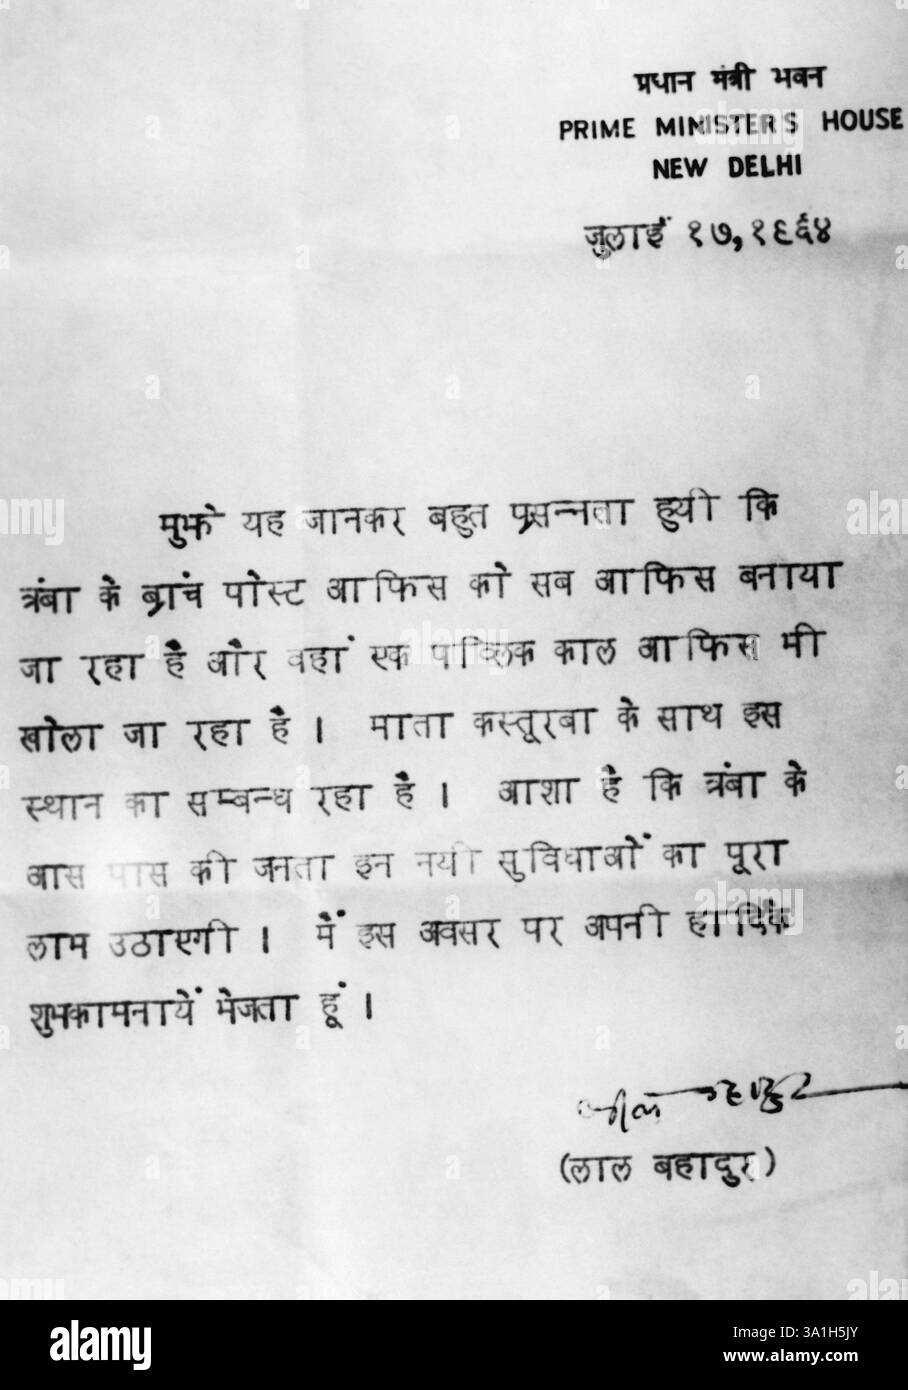 प्रधान मंत्री भवन
PRIME MINISTER'S HOUSE
NEW DELHI
जुलाई १७, १९६४
मुझे यह जानकर बहुत प्रसन्नता हुयी कि
त्रंबा के ब्रांच पोस्ट आफिस को सब आफिस बनाया
जा रहा है और वहां एक पब्लिक काल आफिस भी
खोला जा रहा है । माता कस्तूरबा के साथ इस
स्थान का सम्बन्ध रहा है । आशा है कि त्रंबा के
आस पास की जनता इन नयी सुविधाओं का पूरा
लाभ उठाएगी । मैं इस अवसर पर अपनी हार्दिक
शुभकामनायें भेजता हूं ।
लाल बहादुर
(लाल बहादुर)
alamy
Image ID: 3A1H5JY
www.alamy.com